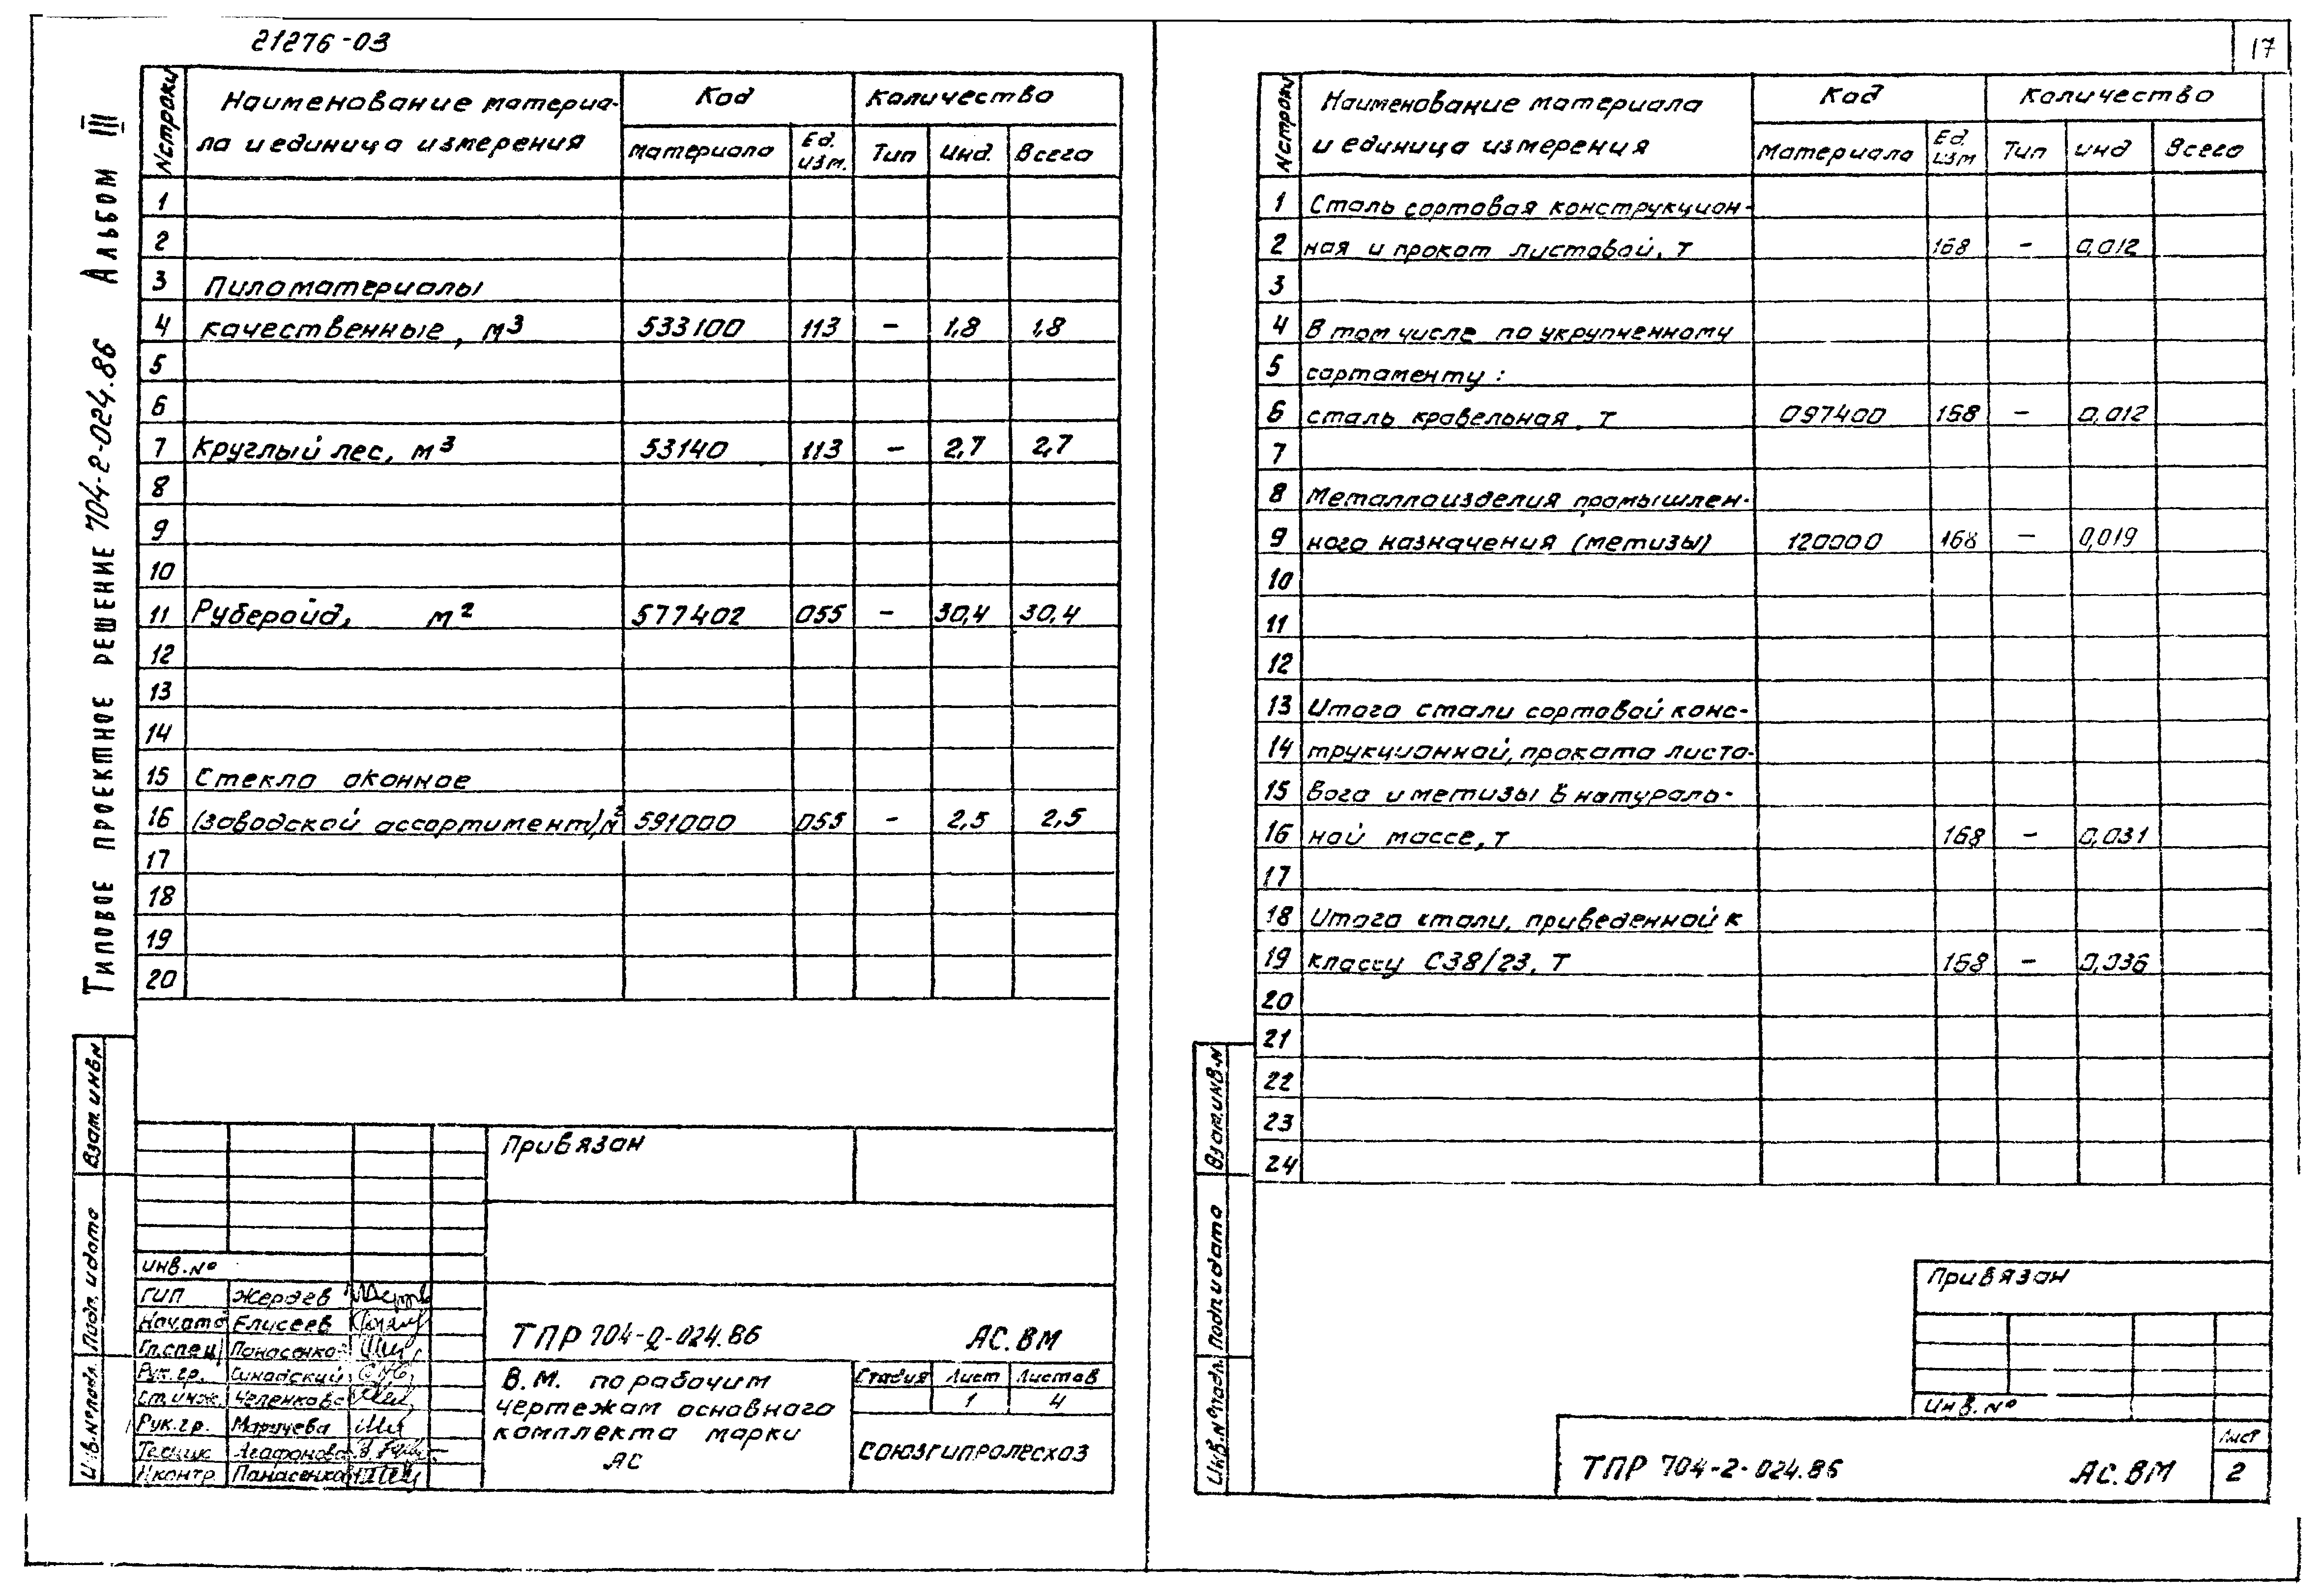 21276-03
17
Типовое проектное решение 704-2-024.86 Альбом III
N строки
Наименование материа-
ла и единица измерения
Код
Количество
материала
Ед.
изм.
Тип
Инд.
Всего
1
2
3 Пиломатериалы
4 качественные, м3 533100 113 – 1,8 1,8
5
6
7 Круглый лес, м3 53140 113 – 2,7 2,7
8
9
10
11 Рубероид, м2 577402 055 – 30,4 30,4
12
13
14
15 Стекло оконное
16 (заводской ассортимент), м2 591000 055 – 2,5 2,5
17
18
19
20
Взам. инв. N
Подп. и дата
Инв. № подл.
Привязан
Инв. №
ГИП Жердев
Нач.отд Елисеев
Гл.спец Панасенко
Рук.гр. Синадский
Ст.инж.
Рук.гр.
Техник Агафонова
Н.контр. Панасенко
ТПР 704-2-024.86 АС.ВМ
В.М. по рабочим
чертежам основного
комплекта марки
АС
Стадия Лист Листов
1 4
Союзгипролесхоз
N строки
Наименование материала
и единица измерения
Код
Количество
Материала
Ед.
изм
Тип
инд
Всего
1 Сталь сортовая конструкцион-
2 ная и прокат листовой, т 168 – 0,012
3
4 В том числе по укрупненному
5 сортаменту:
6 сталь кровельная, т 097400 168 – 0,012
7
8 Металлоизделия промышлен-
9 ного назначения (метизы) 120000 168 – 0,019
10
11
12
13 Итого стали сортовой конс-
14 трукционной, проката листо-
15 вого и метизы в натураль-
16 ной массе, т 168 – 0,031
17
18 Итого стали, приведенной к
19 классу С38/23, т 168 – 0,036
20
21
22
23
24
Взам. инв. N
Подп. и дата
Инв. № подл.
Привязан
Инв. №
ТПР 704-2-024.86 АС.ВМ
Лист
2